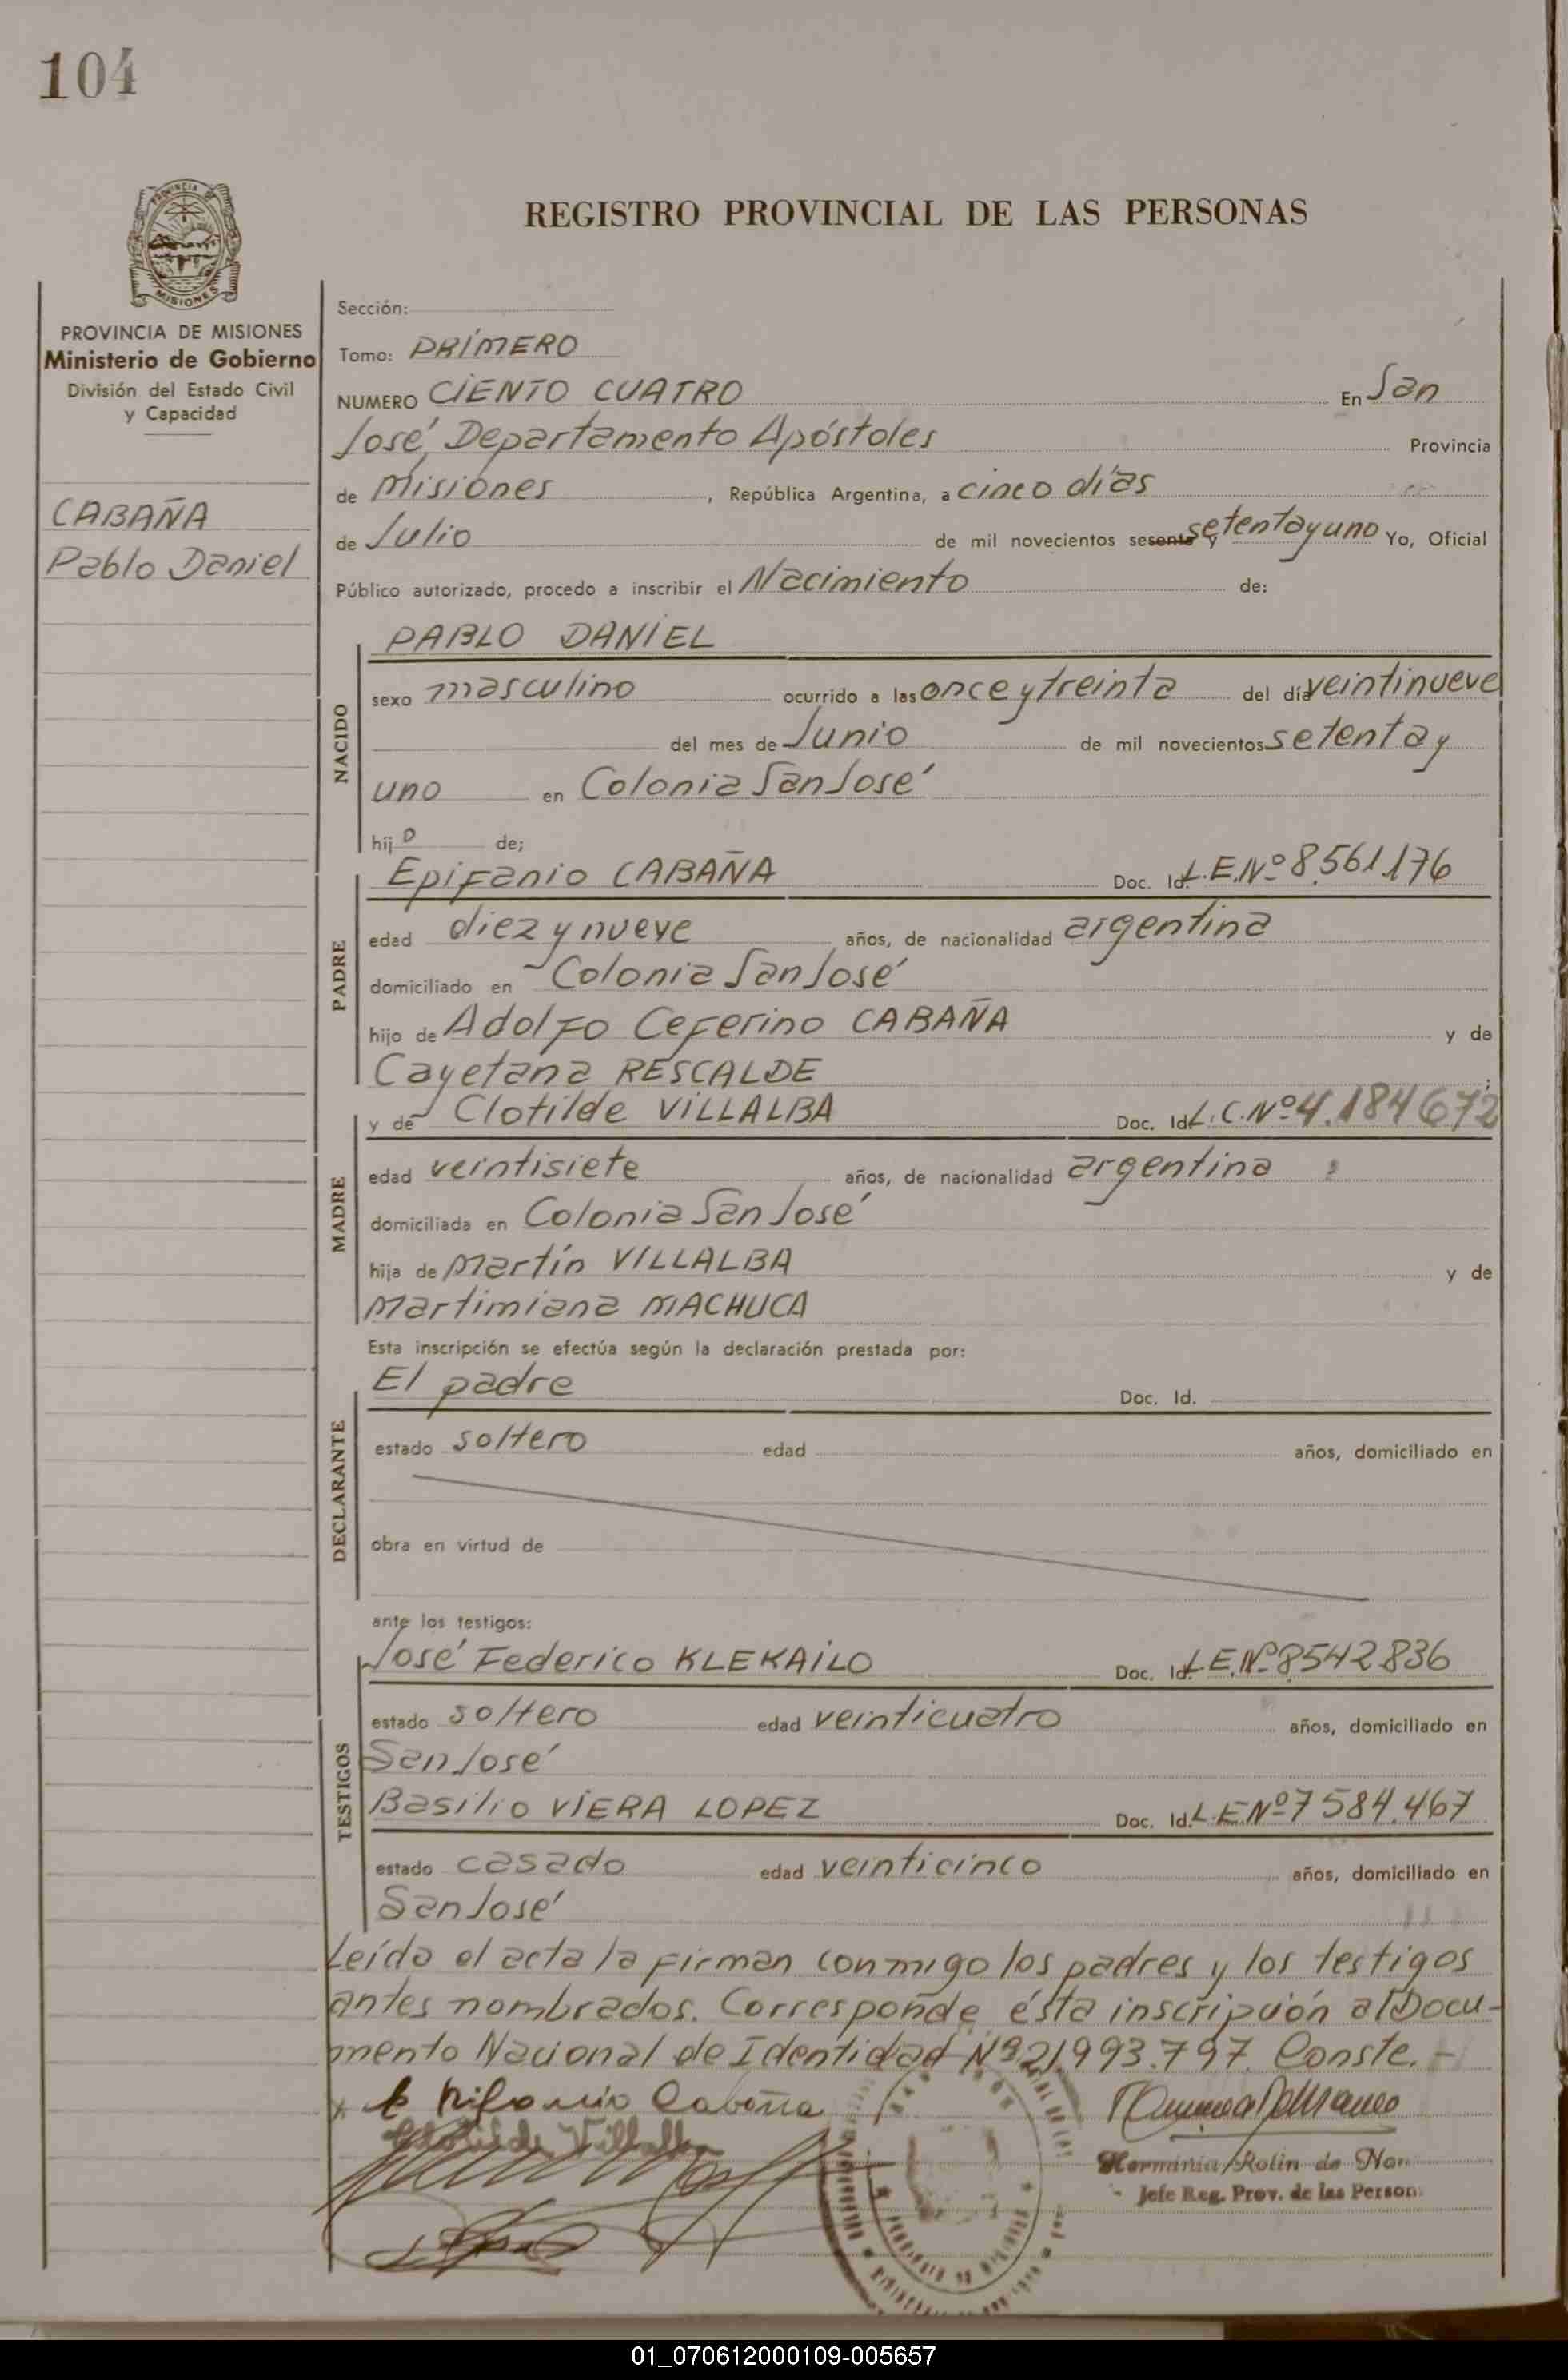 104
PROVINCIA DE MISIONES
Ministerio de Gobierno
División del Estado Civil
y Capacidad
CABAÑA
Pablo Daniel
REGISTRO PROVINCIAL DE LAS PERSONAS
Sección:
Tomo: PRIMERO
NUMERO CIENTO CUATRO En San
José, Departamento Apóstoles Provincia
de Misiones, República Argentina, a cinco días
de Julio de mil novecientos sesenta y setenta y uno Yo, Oficial
Público autorizado, procedo a inscribir el Nacimiento de:
NACIDO
PABLO DANIEL
sexo masculino ocurrido a las once y treinta del día veintinueve
del mes de Junio de mil novecientos setenta y
uno en Colonia San José
hijo de;
PADRE
Epifanio CABAÑA Doc. Id. L.E.Nº 8.561.176
edad diez y nueve años, de nacionalidad argentina
domiciliado en Colonia San José
hijo de Adolfo Ceferino CABAÑA y de
Cayetana RESCALDE;
MADRE
y de Clotilde VILLALBA Doc. Id. L.C.Nº 4.184672
edad veintisiete años, de nacionalidad argentina
domiciliada en Colonia San José
hija de Martín VILLALBA y de
Martimiana MACHUCA
Esta inscripción se efectúa según la declaración prestada por:
DECLARANTE
El padre Doc. Id.
estado soltero edad años, domiciliado en
obra en virtud de
ante los testigos:
TESTIGOS
José Federico KLEKAILO Doc. Id. L.E.Nº 8542836
estado soltero edad veinticuatro años, domiciliado en
San José
Basilio VIERA LOPEZ Doc. Id. L.E.Nº 7584.467
estado casado edad veinticinco años, domiciliado en
San José
Leída el acta la firman conmigo los padres y los testigos
antes nombrados. Corresponde ésta inscripción al Docu-
mento Nacional de Identidad Nº 21.993.797. Conste.-
Cabaña
Herminia Rolin de
Jefe Reg. Prov. de las Person
01_070612000109-005657